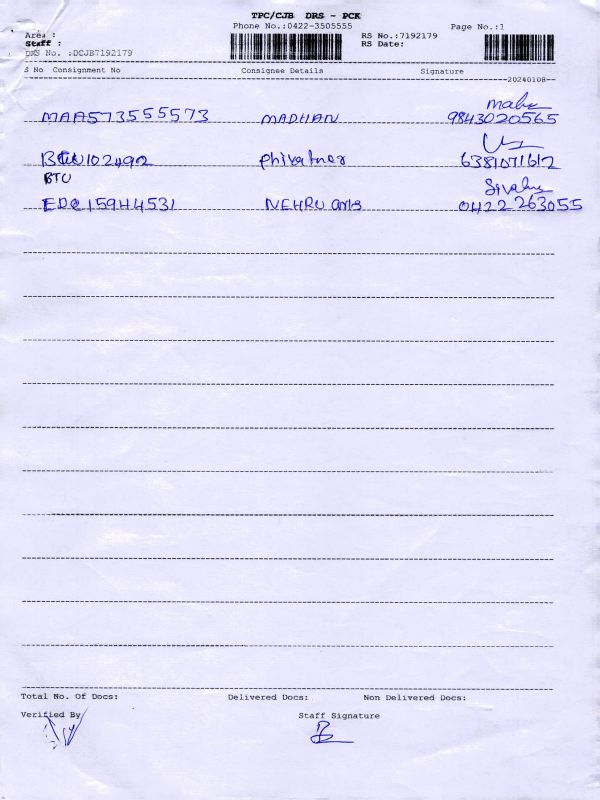 TPC/CJB DRS - PCK
Phone No.:0422-3505555
Page No.:1
Area :
Staff :
RS No.:7192179
RS Date:
DRS No. :DCJB7192179
S No Consignment No Consignee Details Signature
20240108
MAA573555573 MADHAN 9843020565
102492 6381071612
BTU
EDC15944531 NEHRU arts 0422 263055
Total No. Of Docs: Delivered Docs: Non Delivered Docs:
Verified By Staff Signature